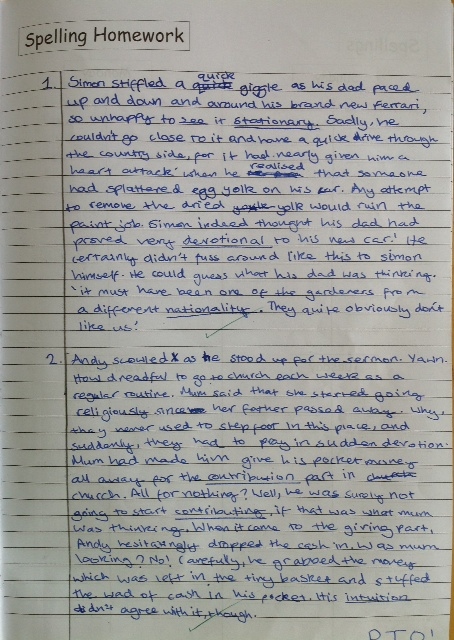 Spelling Homework
1. Simon stiffled a quick giggle as his dad paced
up and down and around his brand new Ferrari,
so unhappy to see it stationary. Sadly, he
couldn't go close to it and have a quick drive through
the country side, for it had nearly given him a
heart attack when he realised that someone
had splattered egg yolk on his car. Any attempt
to remove the dried yolk would ruin the
paint job. Simon indeed thought his dad had
proved very devotional to his new car! He
certainly didn't fuss around like this to simon
himself. He could guess what his dad was thinking.
'it must have been one of the gardeners from
a different nationality. They quite obviously don't
like us.'
2. Andy scowled as he stood up for the sermon. Yawn.
How dreadful to go to church each week as a
regular routine. Mum said that she started going
religiously since her father passed away. Why,
they never used to step foot in this place, and
suddenly, they had to pray in sudden devotion.
Mum had made him give his pocket money
all away for the contribution part in
church. All for nothing? Well, he was surely not
going to start contributing, if that was what mum
was thinking. When it came to the giving part,
Andy hesitavingly dropped the cash in. Was mum
looking? No! Carefully, he grabbed the money
which was left in the tiny basket and stuffed
the wad of cash in his pocket. His intuition
didn't agree with it, though.
PTO!